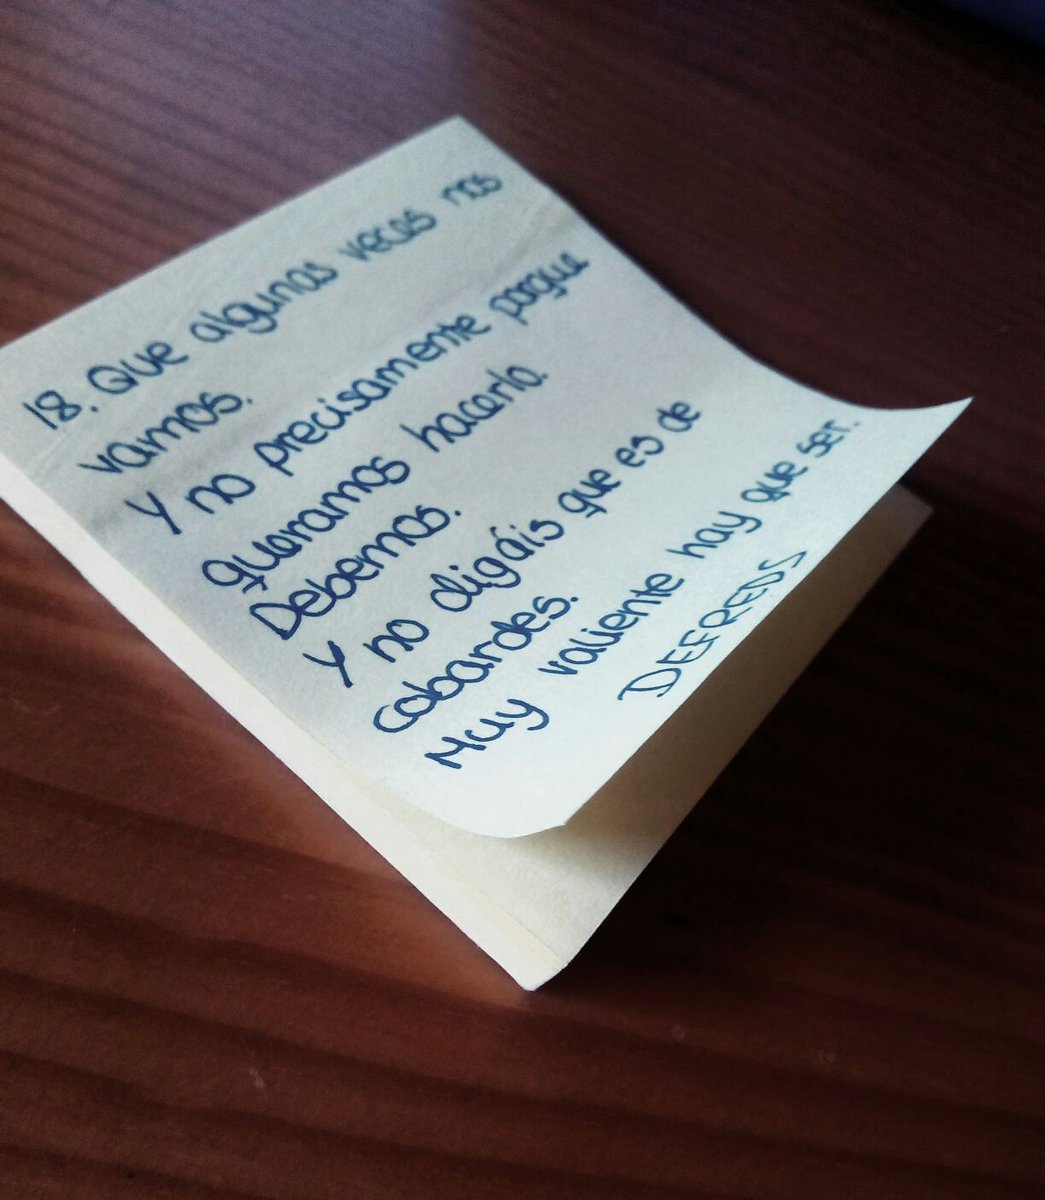 18. Que algunas veces nos
vamos.
Y no precisamente porque
queramos hacerlo.
Debemos.
Y no digáis que es de
cobardes.
Muy valiente hay que ser.
DEFREDS